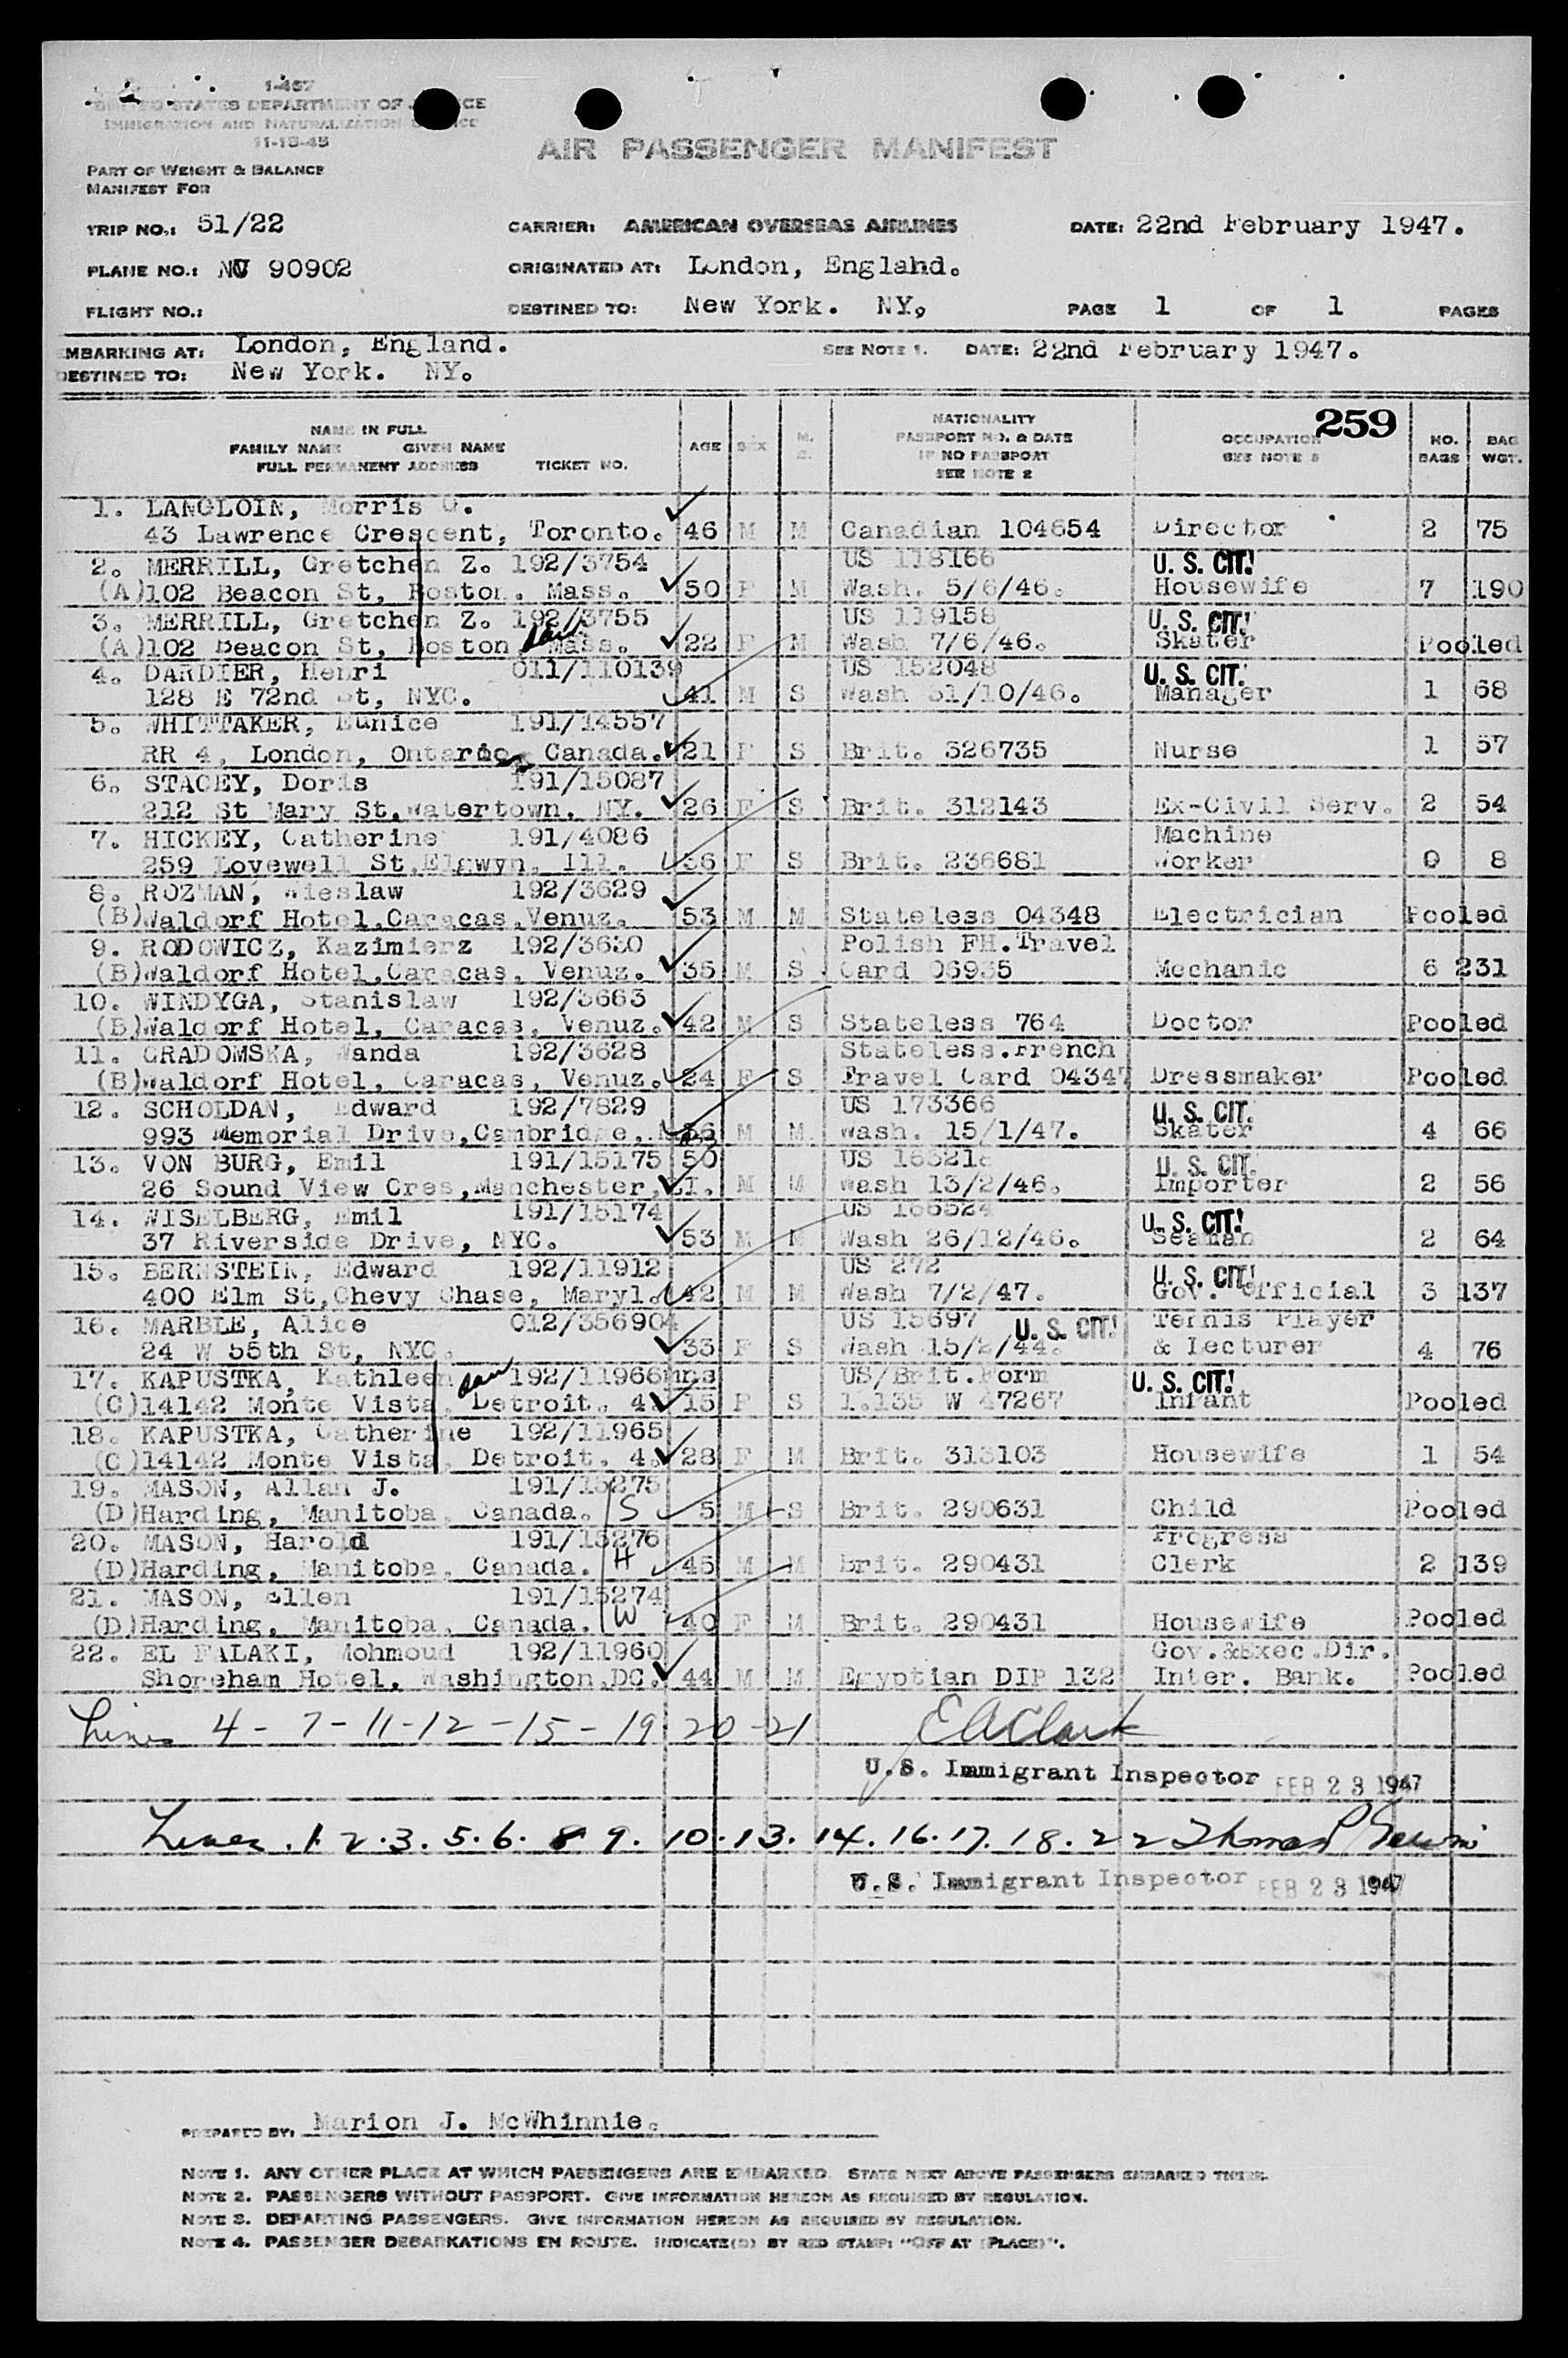 1-467
UNITED STATES DEPARTMENT OF
IMMIGRATION AND NATURALIZATION
11-15-45
AIR PASSENGER MANIFEST
PART OF WEIGHT & BALANCE
MANIFEST FOR
TRIP NO.: 51/22 CARRIER: AMERICAN OVERSEAS AIRLINES DATE: 22nd February 1947.
PLANE NO.: 90902 ORIGINATED AT: London, England.
FLIGHT NO.: DESTINED TO: New York. NY, PAGE 1 OF 1 PAGES
EMBARKING AT: London, England. SEE NOTE 1. DATE: 22nd February 1947.
DESTINED TO: New York. NY.
259
NAME IN FULL
FAMILY NAME GIVEN NAME
FULL PERMANENT ADDRESS TICKET NO. AGE SEX M. S.
NATIONALITY
PASSPORT NO. & DATE
IF NO PASSPORT
SEE NOTE 2
OCCUPATION
SEE NOTE 3
NO. BAGS BAG WGT.
1. LANGLOIN, Morris G.
43 Lawrence Crescent, Toronto. 46 M M Canadian 104654 Director 2 75
2. MERRILL, Gretchen Z. 192/3754 US 118166 U. S. CIT.
(A)102 Beacon St, Boston. Mass. 50 F M Wash. 5/6/46. Housewife 7 190
3. MERRILL, Gretchen Z. 192/3755 US 119158 U. S. CIT.
(A)102 Beacon St, Boston, Mass. dau 22 F M Wash 7/6/46. Skater Pooled
4. DARDIER, Henri 011/110139 US 152048 U. S. CIT.
128 E 72nd St, NYC. 41 M S Wash 31/10/46. Manager 1 68
5. WHITTAKER, Eunice 191/14557
RR 4, London, Ontario, Canada. 21 F S Brit. 326735 Nurse 1 57
6. STACEY, Doris 191/15087
212 St Mary St.Watertown. NY. 26 F S Brit. 312143 Ex-Civil Serv. 2 54
7. HICKEY, Catherine 191/4086 Machine
259 Lovewell St.Elgwyn, Ill. 36 F S Brit. 236681 Worker 0 8
8. ROZMAN, Wieslaw 192/3629
(B)Waldorf Hotel.Caracas.Venuz. 53 M M Stateless 04348 Electrician Pooled
9. RODOWICZ, Kazimierz 192/3630 Polish FH.Travel
(B)Waldorf Hotel.Caracas, Venuz. 35 M S Card 06935 Mechanic 6 231
10. WINDYGA, Stanislaw 192/3663
(B)Waldorf Hotel, Caracas, Venuz. 42 M S Stateless 764 Doctor Pooled
11. GRADOMSKA, Wanda 192/3628 Stateless.French
(B)Waldorf Hotel, Caracas, Venuz. 24 F S Travel Card 04347 Dressmaker Pooled
12. SCHOLDAN, Edward 192/7829 US 173366 U. S. CIT.
993 Memorial Drive,Cambridge, M M Wash. 15/1/47. Skater 4 66
13. VON BURG, Emil 191/15175 50 US U. S. CIT.
26 Sound View Cres,Manchester, M M Wash 13/2/46. Importer 2 56
14. WISELBERG, Emil 191/15174 US 166524 U. S. CIT!
37 Riverside Drive, NYC. 53 M M Wash 26/12/46. Seaman 2 64
15. BERNSTEIN, Edward 192/11912 US 272 U. S. CIT!
400 Elm St,Chevy Chase, Maryl. 42 M M Wash 7/2/47. Gov. Official 3 137
16. MARBLE, Alice 012/356904 US 15697 U. S. CIT! Tennis Player
24 W 55th St, NYC. 33 F S Wash 15/2/44. & Lecturer 4 76
17. KAPUSTKA, Kathleen dau 192/11966 mns US/Brit.Form U. S. CIT!
(C)14142 Monte Vista, Detroit. 4. 15 F S I.135 W 47267 Infant Pooled
18. KAPUSTKA, Catherine 192/11965
(C)14142 Monte Vista, Detroit. 4. 28 F M Brit. 313103 Housewife 1 54
19. MASON, Allan J. 191/15275
(D)Harding, Manitoba, Canada. S 5 M S Brit. 290631 Child Pooled
20. MASON, Harold 191/15276 Progress
(D)Harding, Manitoba, Canada. H 45 M M Brit. 290431 Clerk 2 139
21. MASON, Ellen 191/15274
(D)Harding, Manitoba, Canada. W 40 F M Brit. 290431 Housewife Pooled
22. EL FALAKI, Mohmoud 192/11960 Gov.&Exec.Dir.
Shoreham Hotel, Washington.DC. 44 M M Egyptian DIP 132 Inter. Bank. Pooled
Lines 4 - 7 - 11 - 12 - 15 - 19 - 20 - 21 E A Clark
U.S. Immigrant Inspector FEB 23 1947
Lines . 1 2 . 3 . 5 . 6 . 8 9 . 10 . 13 . 14 . 16 . 17 . 18 . 22 Thomas
U.S. Immigrant Inspector FEB 23 1947
PREPARED BY: Marion J. McWhinnie.
NOTE 1. ANY OTHER PLACE AT WHICH PASSENGERS ARE EMBARKED. STATE NEXT ABOVE PASSENGERS EMBARKED THERE.
NOTE 2. PASSENGERS WITHOUT PASSPORT. GIVE INFORMATION HEREON AS REQUIRED BY REGULATION.
NOTE 3. DEPARTING PASSENGERS. GIVE INFORMATION HEREON AS REQUIRED BY REGULATION.
NOTE 4. PASSENGER DEBARKATIONS EN ROUTE. INDICATE(D) BY RED STAMP: "OFF AT (PLACE)".